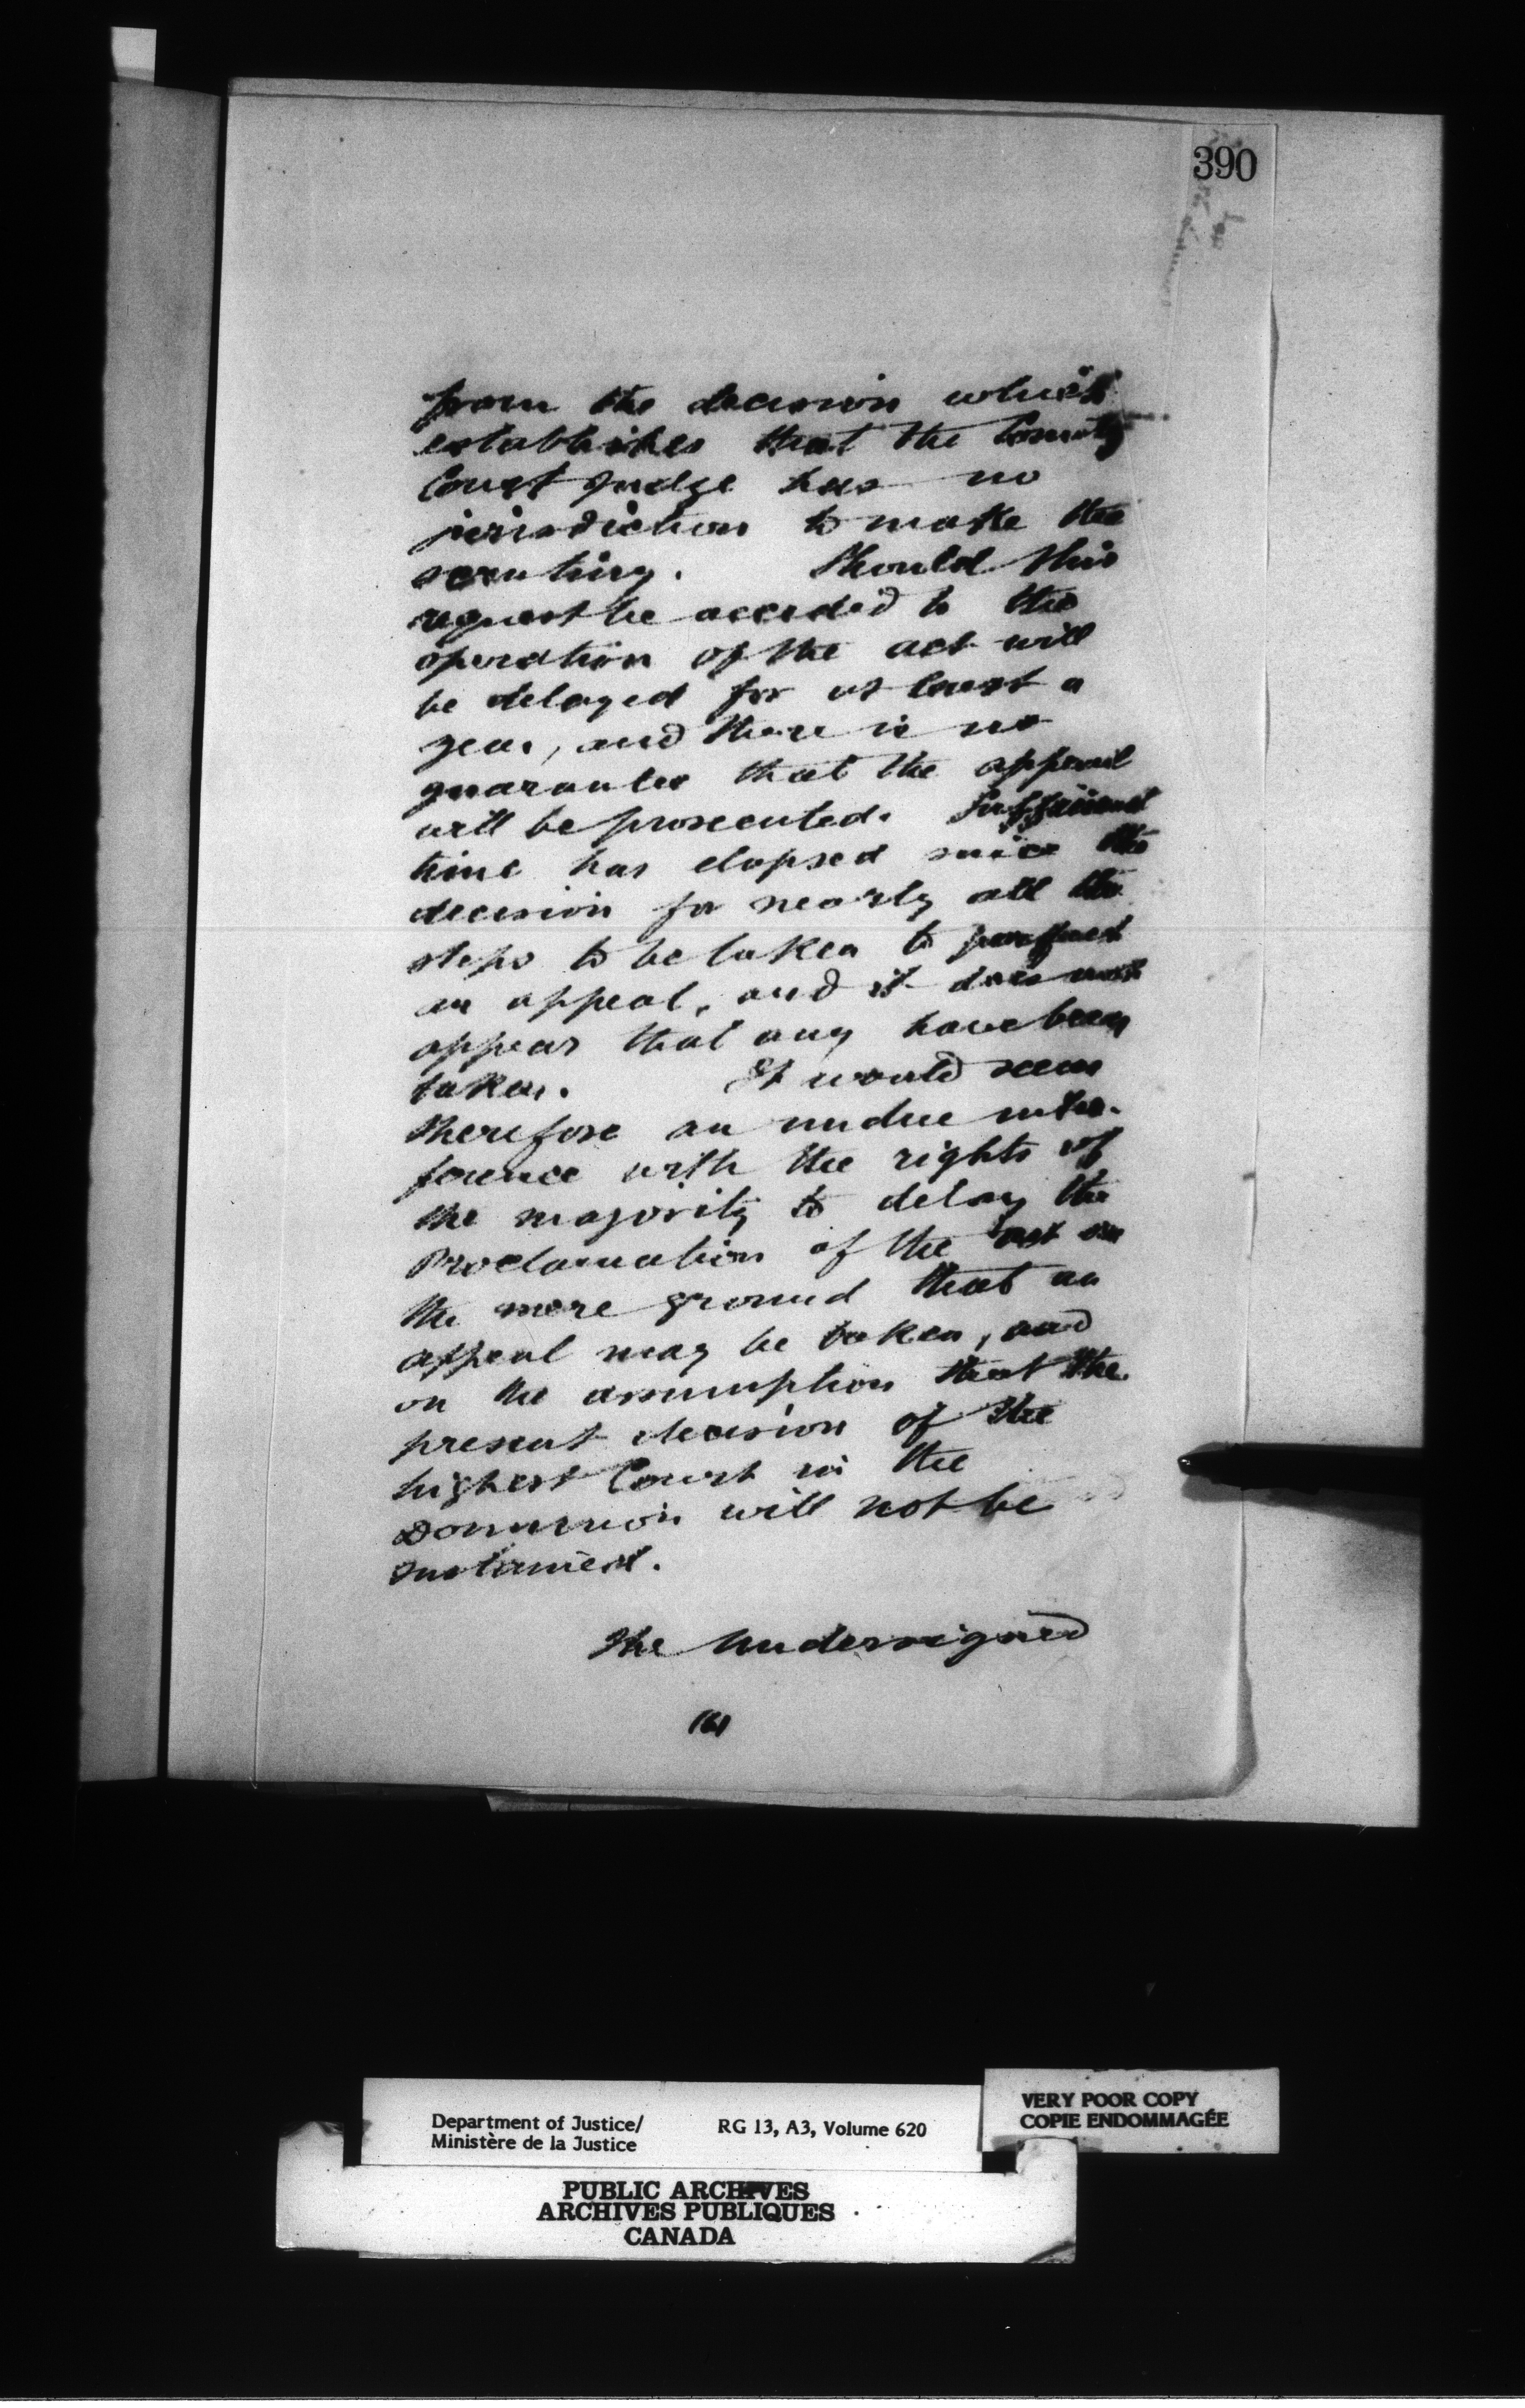 390
from the decision which
establishes that the County
Court Judge has no
jurisdiction to make the
scrutiny. Should this
request be acceded to the
operation of the act will
be delayed for at least a
year, and there is no
guarantee that the appeal
will be prosecuted. Sufficient
time has elapsed since the
decision for nearly all the
steps to be taken to perfect
an appeal, and it does not
appear that any have been
taken. It would seem
therefore an undue inter-
ference with the rights of
the majority to delay the
Proclamation of the act on
the mere ground that an
appeal may be taken, and
on the assumption that the
present decision of the
highest Court in the
Dominion will not be
sustained.
The Undersigned
(6)
Department of Justice/
Ministère de la Justice
RG 13, A3, Volume 620
VERY POOR COPY
COPIE ENDOMMAGÉE
PUBLIC ARCHIVES
ARCHIVES PUBLIQUES
CANADA